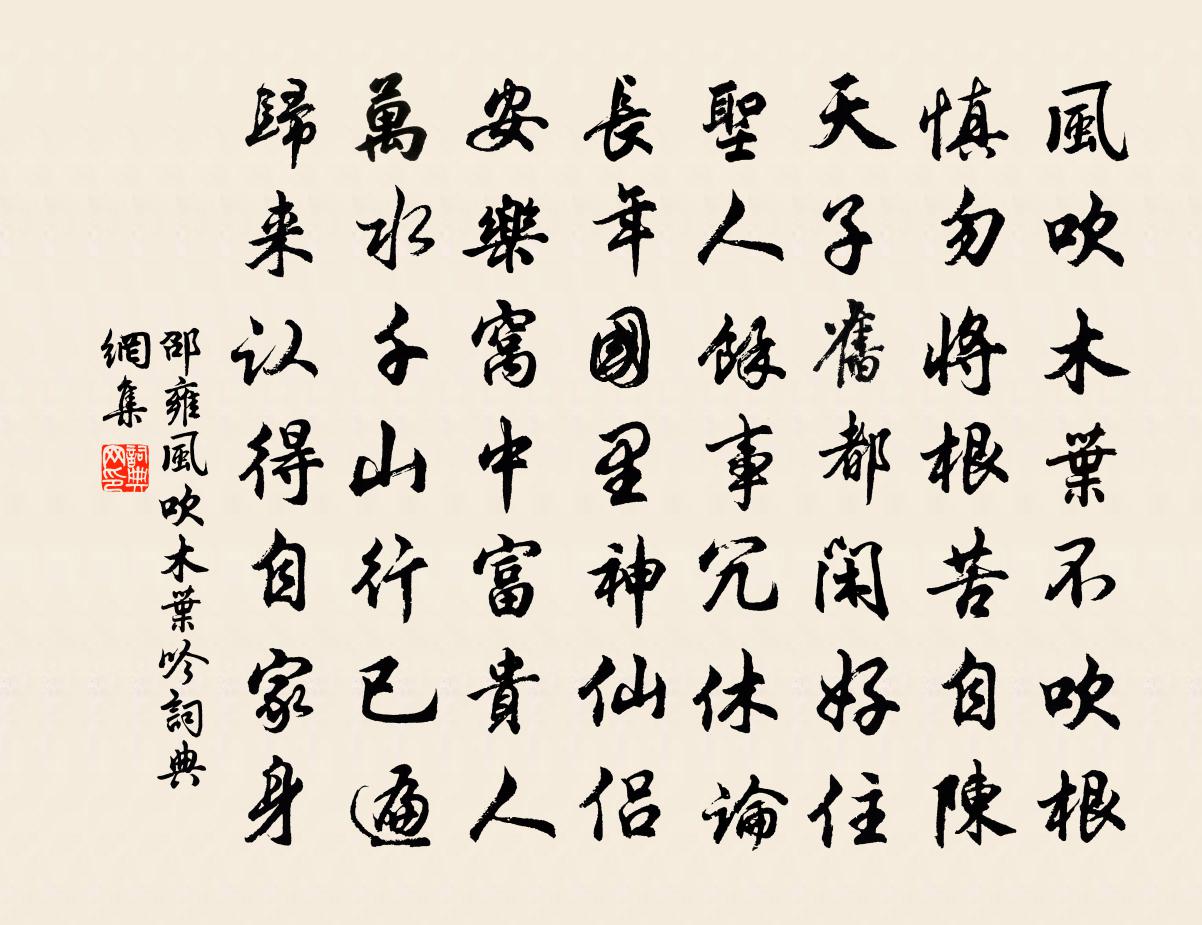 風吹木葉不吹根
慎勿將根苦自陳
天子舊都閑好住
聖人餘事冗休論
長年國里神仙侶
安樂窩中富貴人
萬水千山行已遍
歸来认得自家身
邵雍風吹木葉吟詞典
網集
詞典
网印